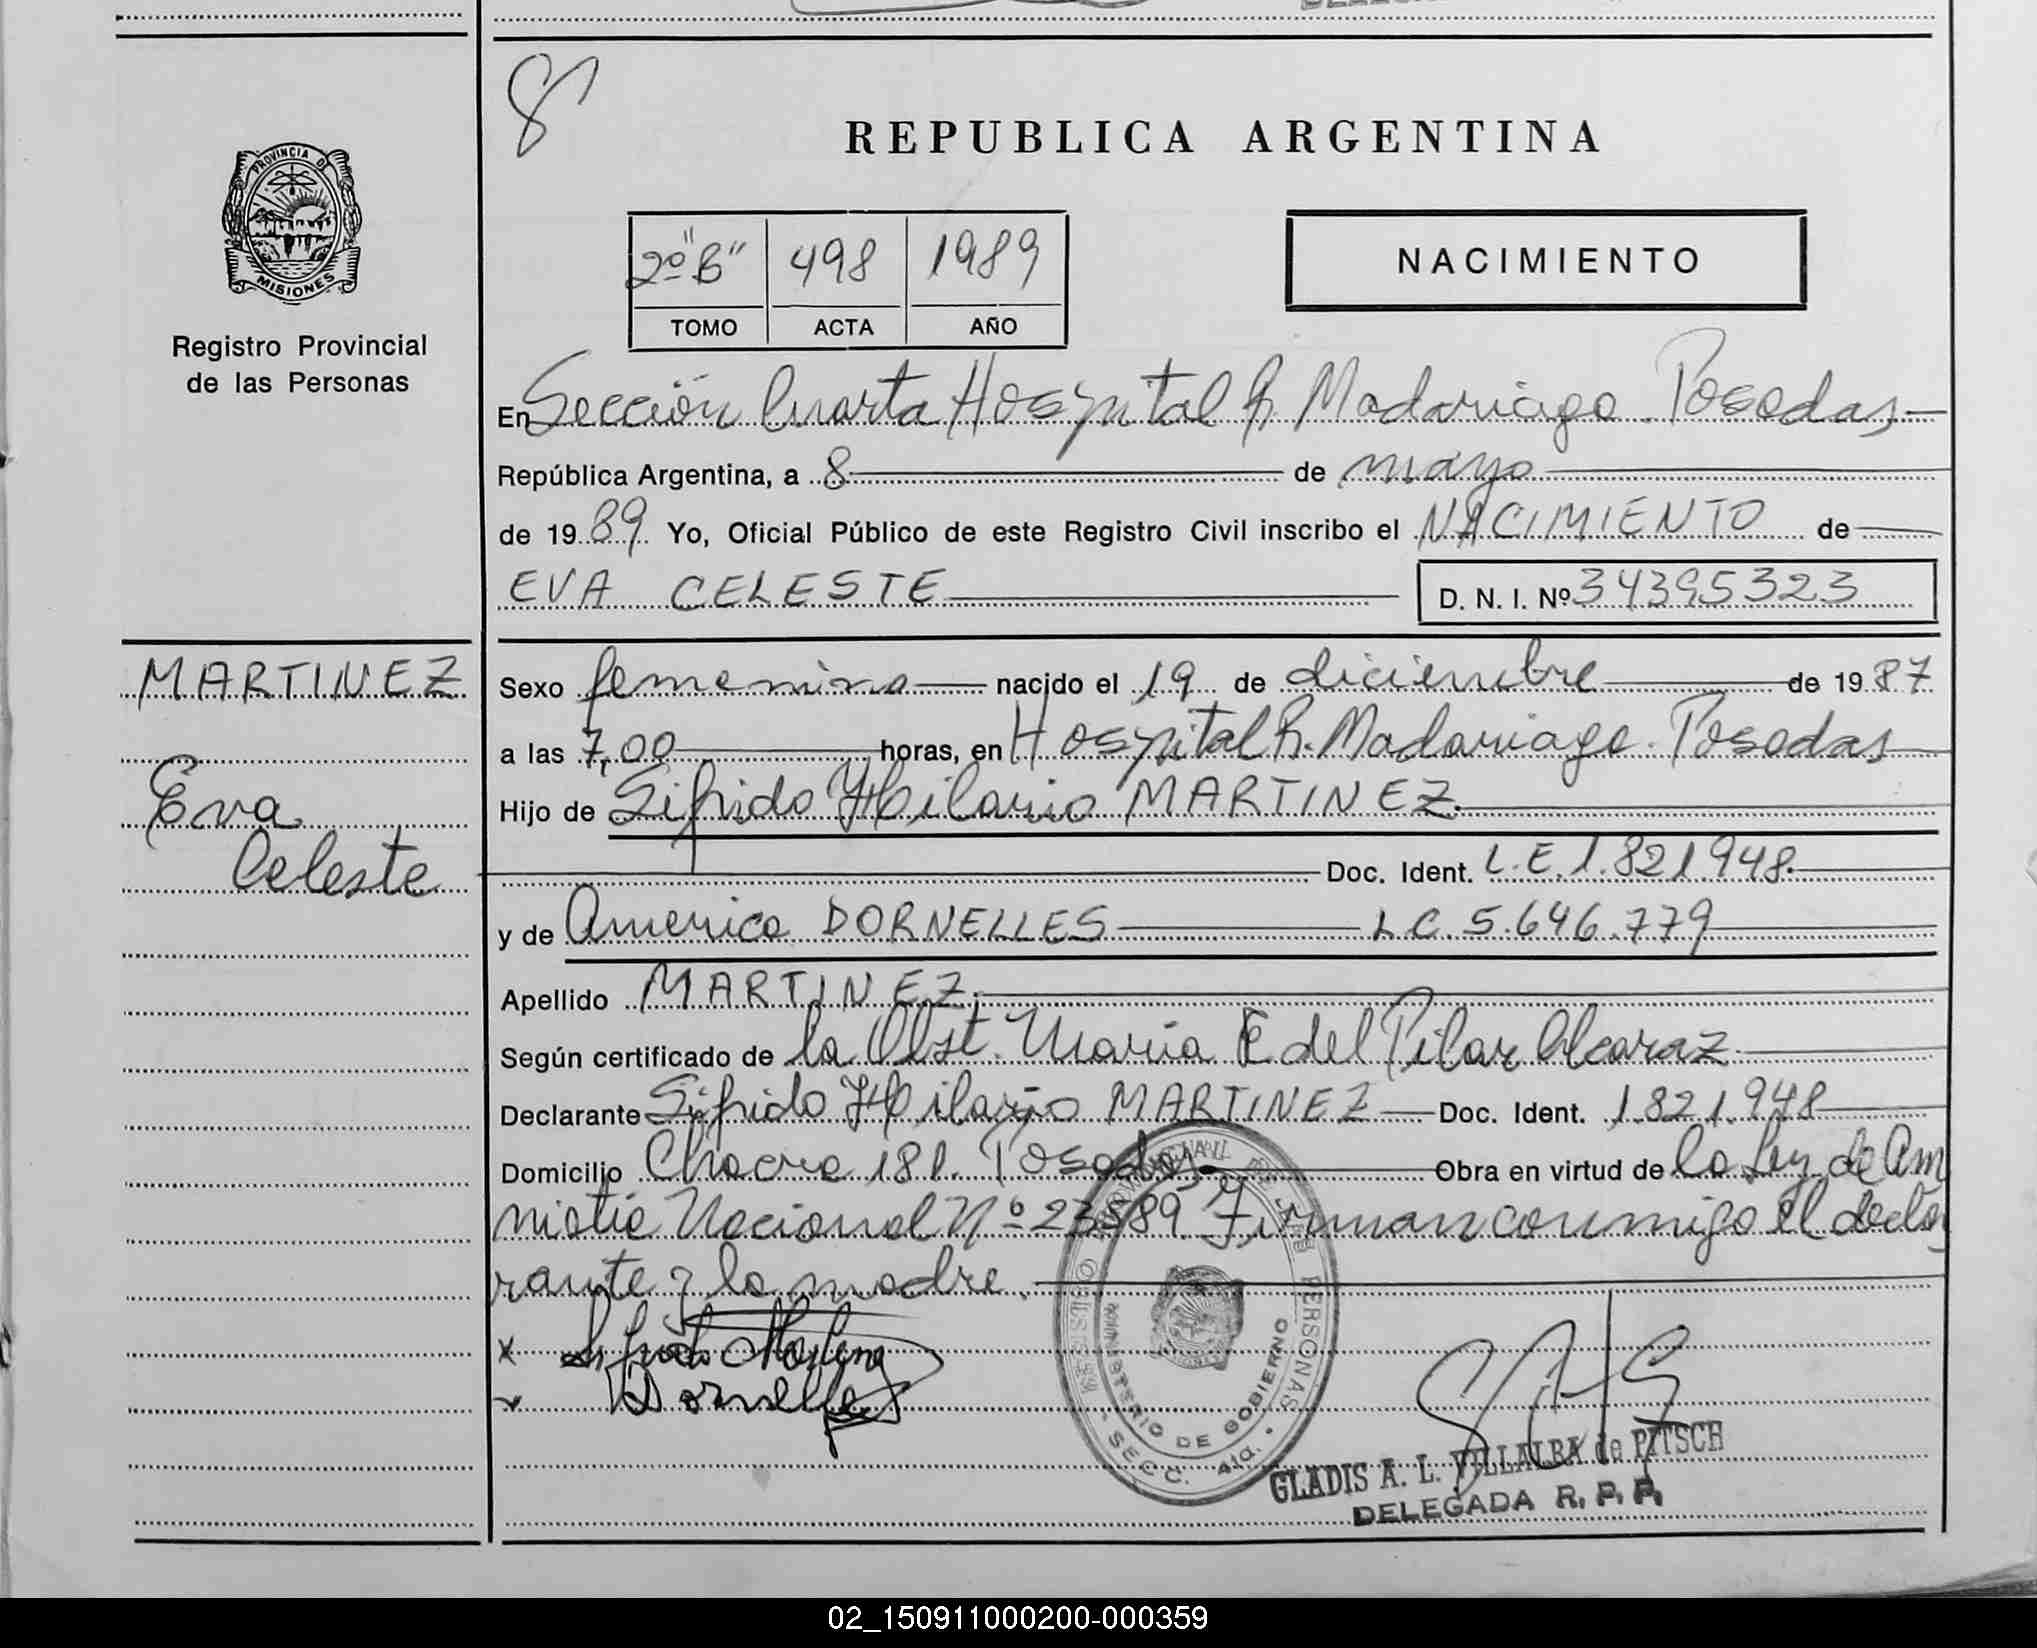 8
REPUBLICA ARGENTINA
PROVINCIA DE
MISIONES
Registro Provincial
de las Personas
2º "B" 498 1989
TOMO ACTA AÑO
NACIMIENTO
En Sección Cuarta Hospital R. Madariaga. Posadas
República Argentina, a 8 de mayo
de 1989 Yo, Oficial Público de este Registro Civil inscribo el NACIMIENTO de
EVA CELESTE D. N. I. Nº 34395323
MARTINEZ
Eva
Celeste
Sexo femenino nacido el 19 de diciembre de 1987
a las 7,00 horas, en Hospital R. Madariaga. Posadas
Hijo de Sifrido Hilario MARTINEZ.
Doc. Ident. L.E. 1.821948.
y de America DORNELLES L.C. 5.646.779
Apellido MARTINEZ.
Según certificado de la Obst. Maria E del Pilar Alcaraz
Declarante Sifrido Hilario MARTINEZ Doc. Ident. 1.821.948
Domicilio Chacra 181. Posadas. Obra en virtud de la Ley de Am
nistia Nacional Nº 23589. Firman conmigo el decla
rante y la madre.
x
Dornelles
REGISTRO PROVINCIAL DE LAS PERSONAS
MINISTERIO DE GOBIERNO
SECC. 4ta.
GLADIS A. L. VILLALBA de PITSCH
DELEGADA R. P. P.
02_150911000200-000359